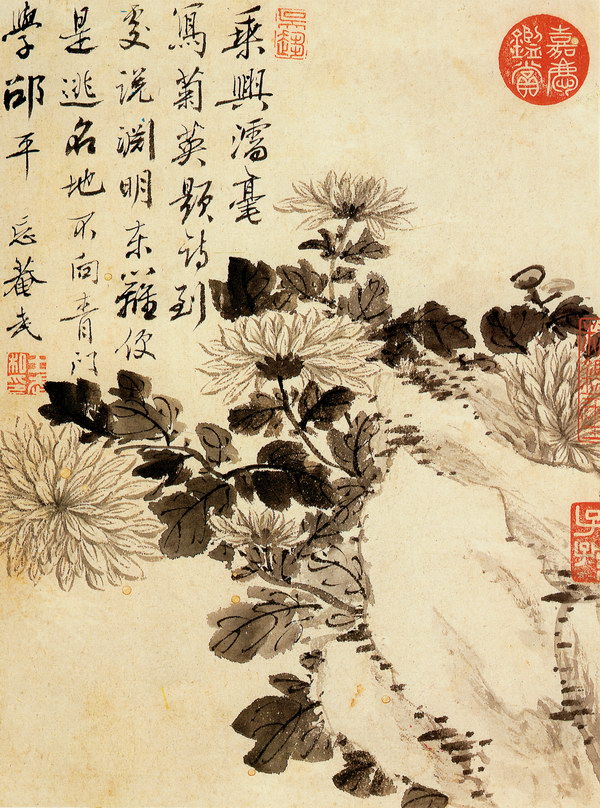 嘉慶鑑賞
乘興濡毫
寫菊英題詩到
處說淵明東籬便
是逃名地不向青門
學邵平 忘菴武